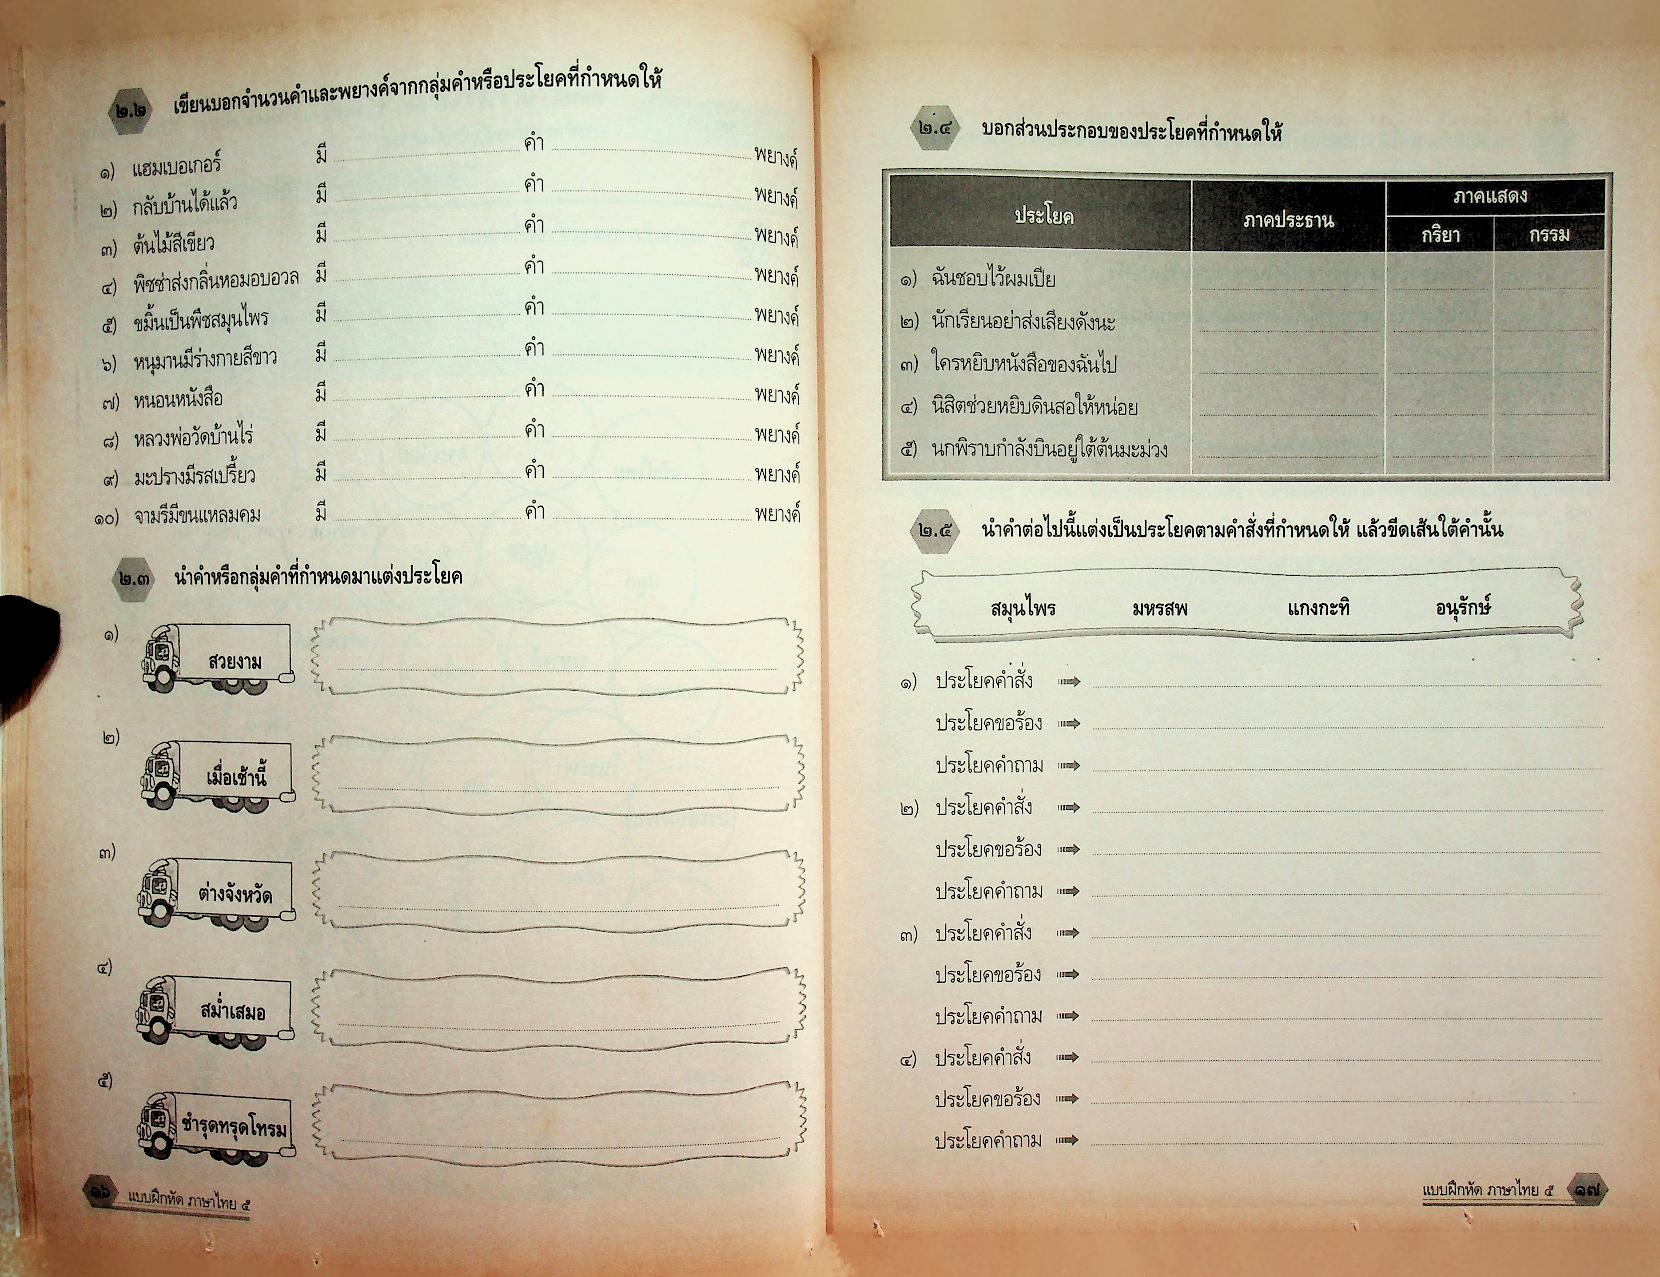 ๒.๒ เขียนบอกจำนวนคำและพยางค์จากกลุ่มคำหรือประโยคที่กำหนดให้
๑) แฮมเบอเกอร์ มี คำ พยางค์
๒) กลับบ้านได้แล้ว มี คำ พยางค์
๓) ต้นไม้สีเขียว มี คำ พยางค์
๔) พิซซ่าส่งกลิ่นหอมอบอวล มี คำ พยางค์
๕) ขมิ้นเป็นพืชสมุนไพร มี คำ พยางค์
๖) หนุมานมีร่างกายสีขาว มี คำ พยางค์
๗) หนอนหนังสือ มี คำ พยางค์
๘) หลวงพ่อวัดบ้านไร่ มี คำ พยางค์
๙) มะปรางมีรสเปรี้ยว มี คำ พยางค์
๑๐) จามรีมีขนแหลมคม มี คำ พยางค์
๒.๓ นำคำหรือกลุ่มคำที่กำหนดมาแต่งประโยค
๑) สวยงาม
๒) เมื่อเช้านี้
๓) ต่างจังหวัด
๔) สม่ำเสมอ
๕) ชำรุดทรุดโทรม
๑๖ แบบฝึกหัด ภาษาไทย ๕
๒.๔ บอกส่วนประกอบของประโยคที่กำหนดให้
ประโยค ภาคประธาน ภาคแสดง
กริยา กรรม
๑) ฉันชอบไว้ผมเปีย
๒) นักเรียนอย่าส่งเสียงดังนะ
๓) ใครหยิบหนังสือของฉันไป
๔) นิสิตช่วยหยิบดินสอให้หน่อย
๕) นกพิราบกำลังบินอยู่ใต้ต้นมะม่วง
๒.๕ นำคำต่อไปนี้แต่งเป็นประโยคตามคำสั่งที่กำหนดให้ แล้วขีดเส้นใต้คำนั้น
สมุนไพร มหรสพ แกงกะทิ อนุรักษ์
๑) ประโยคคำสั่ง
ประโยคขอร้อง
ประโยคคำถาม
๒) ประโยคคำสั่ง
ประโยคขอร้อง
ประโยคคำถาม
๓) ประโยคคำสั่ง
ประโยคขอร้อง
ประโยคคำถาม
๔) ประโยคคำสั่ง
ประโยคขอร้อง
ประโยคคำถาม
แบบฝึกหัด ภาษาไทย ๕ ๑๗